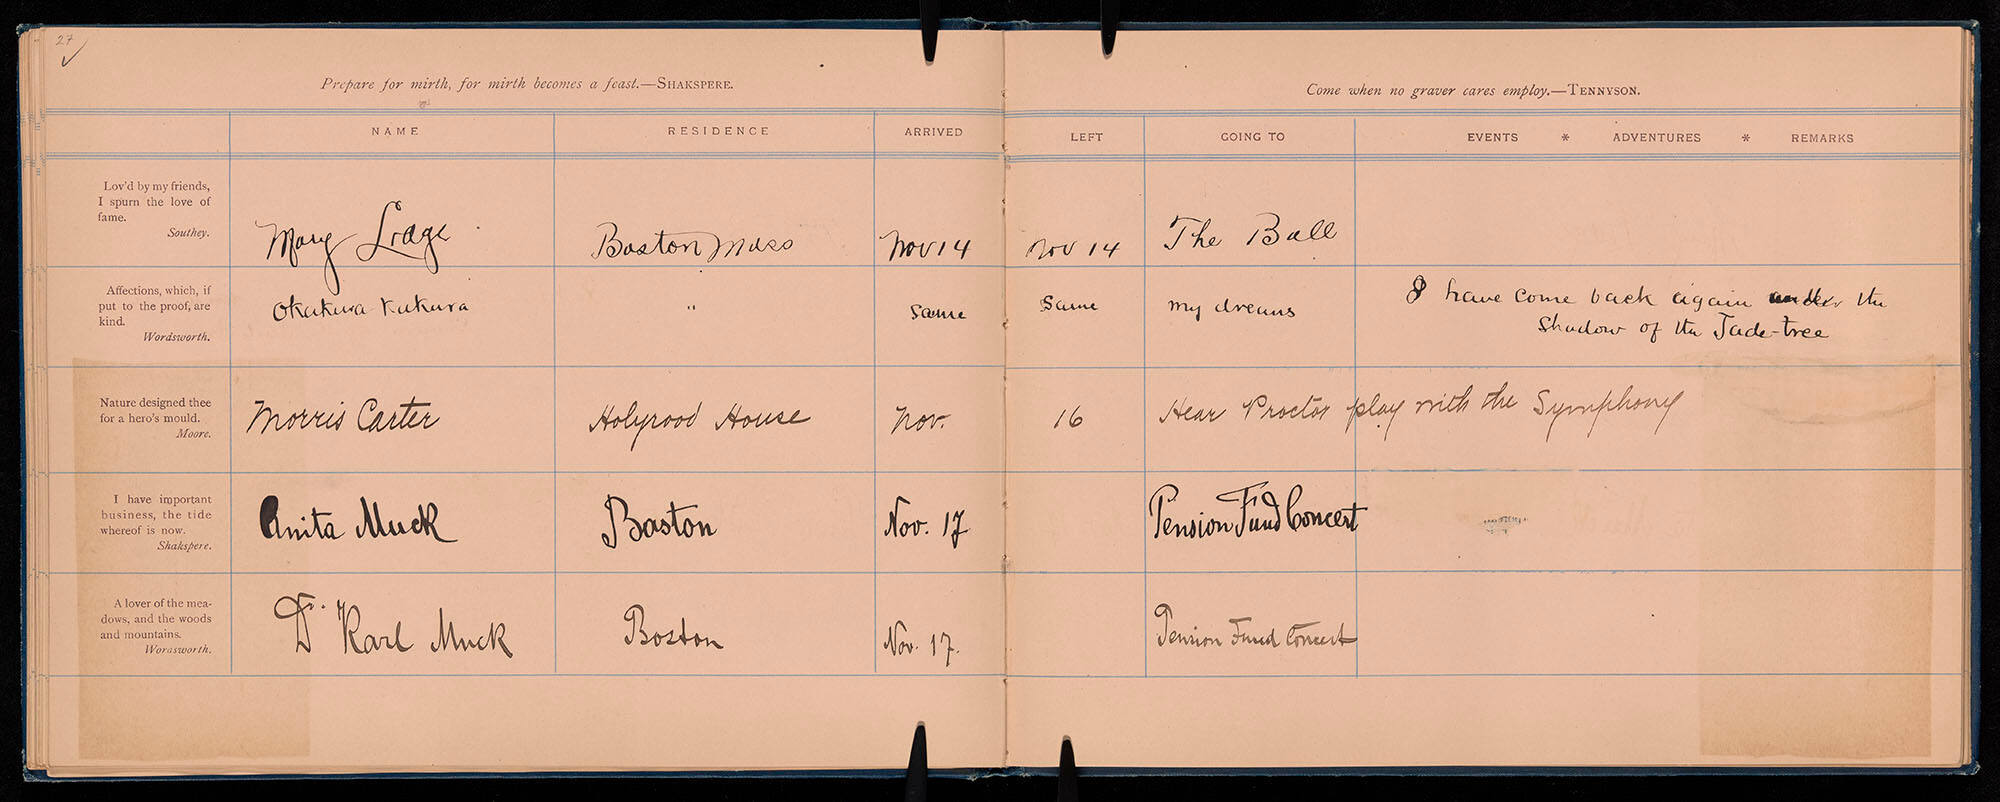 27
Prepare for mirth, for mirth becomes a feast.—SHAKSPERE.
Come when no graver cares employ.—TENNYSON.
NAME RESIDENCE ARRIVED LEFT GOING TO EVENTS * ADVENTURES * REMARKS
Lov'd by my friends,
I spurn the love of
fame.
Southey.
Mary Boston Mass Nov 14 Nov 14 The Ball
Affections, which, if
put to the proof, are
kind.
Wordsworth.
Okakura Kakuzo " same same my dreams
I have come back again under the
shadow of the Jade-tree
Nature designed thee
for a hero's mould.
Moore.
Morris Carter Holyrood House Nov. 16 Hear Proctor play with the Symphony
I have important
business, the tide
whereof is now.
Shakspere.
Anita Muck Boston Nov. 17 Pension Fund Concert
A lover of the mea-
dows, and the woods
and mountains.
Wordsworth.
Dr. Karl Muck Boston Nov. 17. Pension Fund Concert